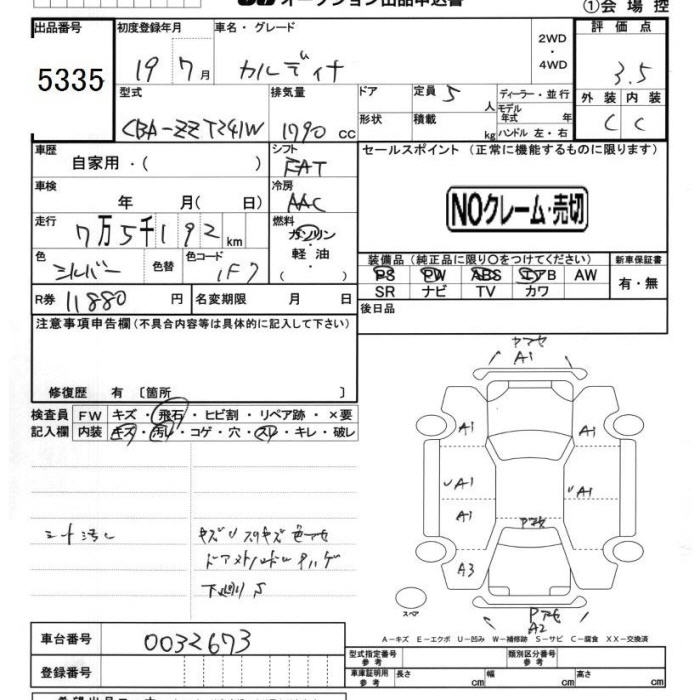 オークション出品申込書
①会場控
出品番号 初度登録年月 車名・グレード 2WD ・ 4WD 評価点
5335 19年 7月 カルディナ 3.5
型式 排気量 ドア 定員 5人 ディーラー・並行 外装 内装
CBA-ZZT241W 1790 cc 形状 積載 kg モデル年式 年 ハンドル 左・右 C C
車歴 自家用・( ) シフト FAT セールスポイント (正常に機能するものに限ります)
車検 年 月( 日) 冷房 AAC
NOクレーム・売切
走行 7万5千192km 燃料 ガソリン ・ 軽油
色 シルバー 色替 色コード 1F7
装備品 (純正品に限り○をつけてください) 新車保証書
PS PW ABS エアB AW 有・無
SR ナビ TV カワ
R券 11880 円 名変期限 月 日 後日品
注意事項申告欄 (不具合内容等は具体的に記入して下さい)
修復歴 有 〔箇所 〕
検査員 FW キズ・飛石・ヒビ割・リペア跡・×要
記入欄 内装 キズ・汚レ・コゲ・穴・スレ・キレ・破レ
A1
A1 A1
A1 A1
A1
A3
A2
シート汚レ
下廻りS
スペア
A-キズ E-エクボ U-凹み W-補修跡 S-サビ C-腐食 XX-交換済
車台番号 0032673
型式指定番号 参考 類別区分番号 参考
登録番号 車庫証明用 参考 長さ cm 幅 cm 高さ cm